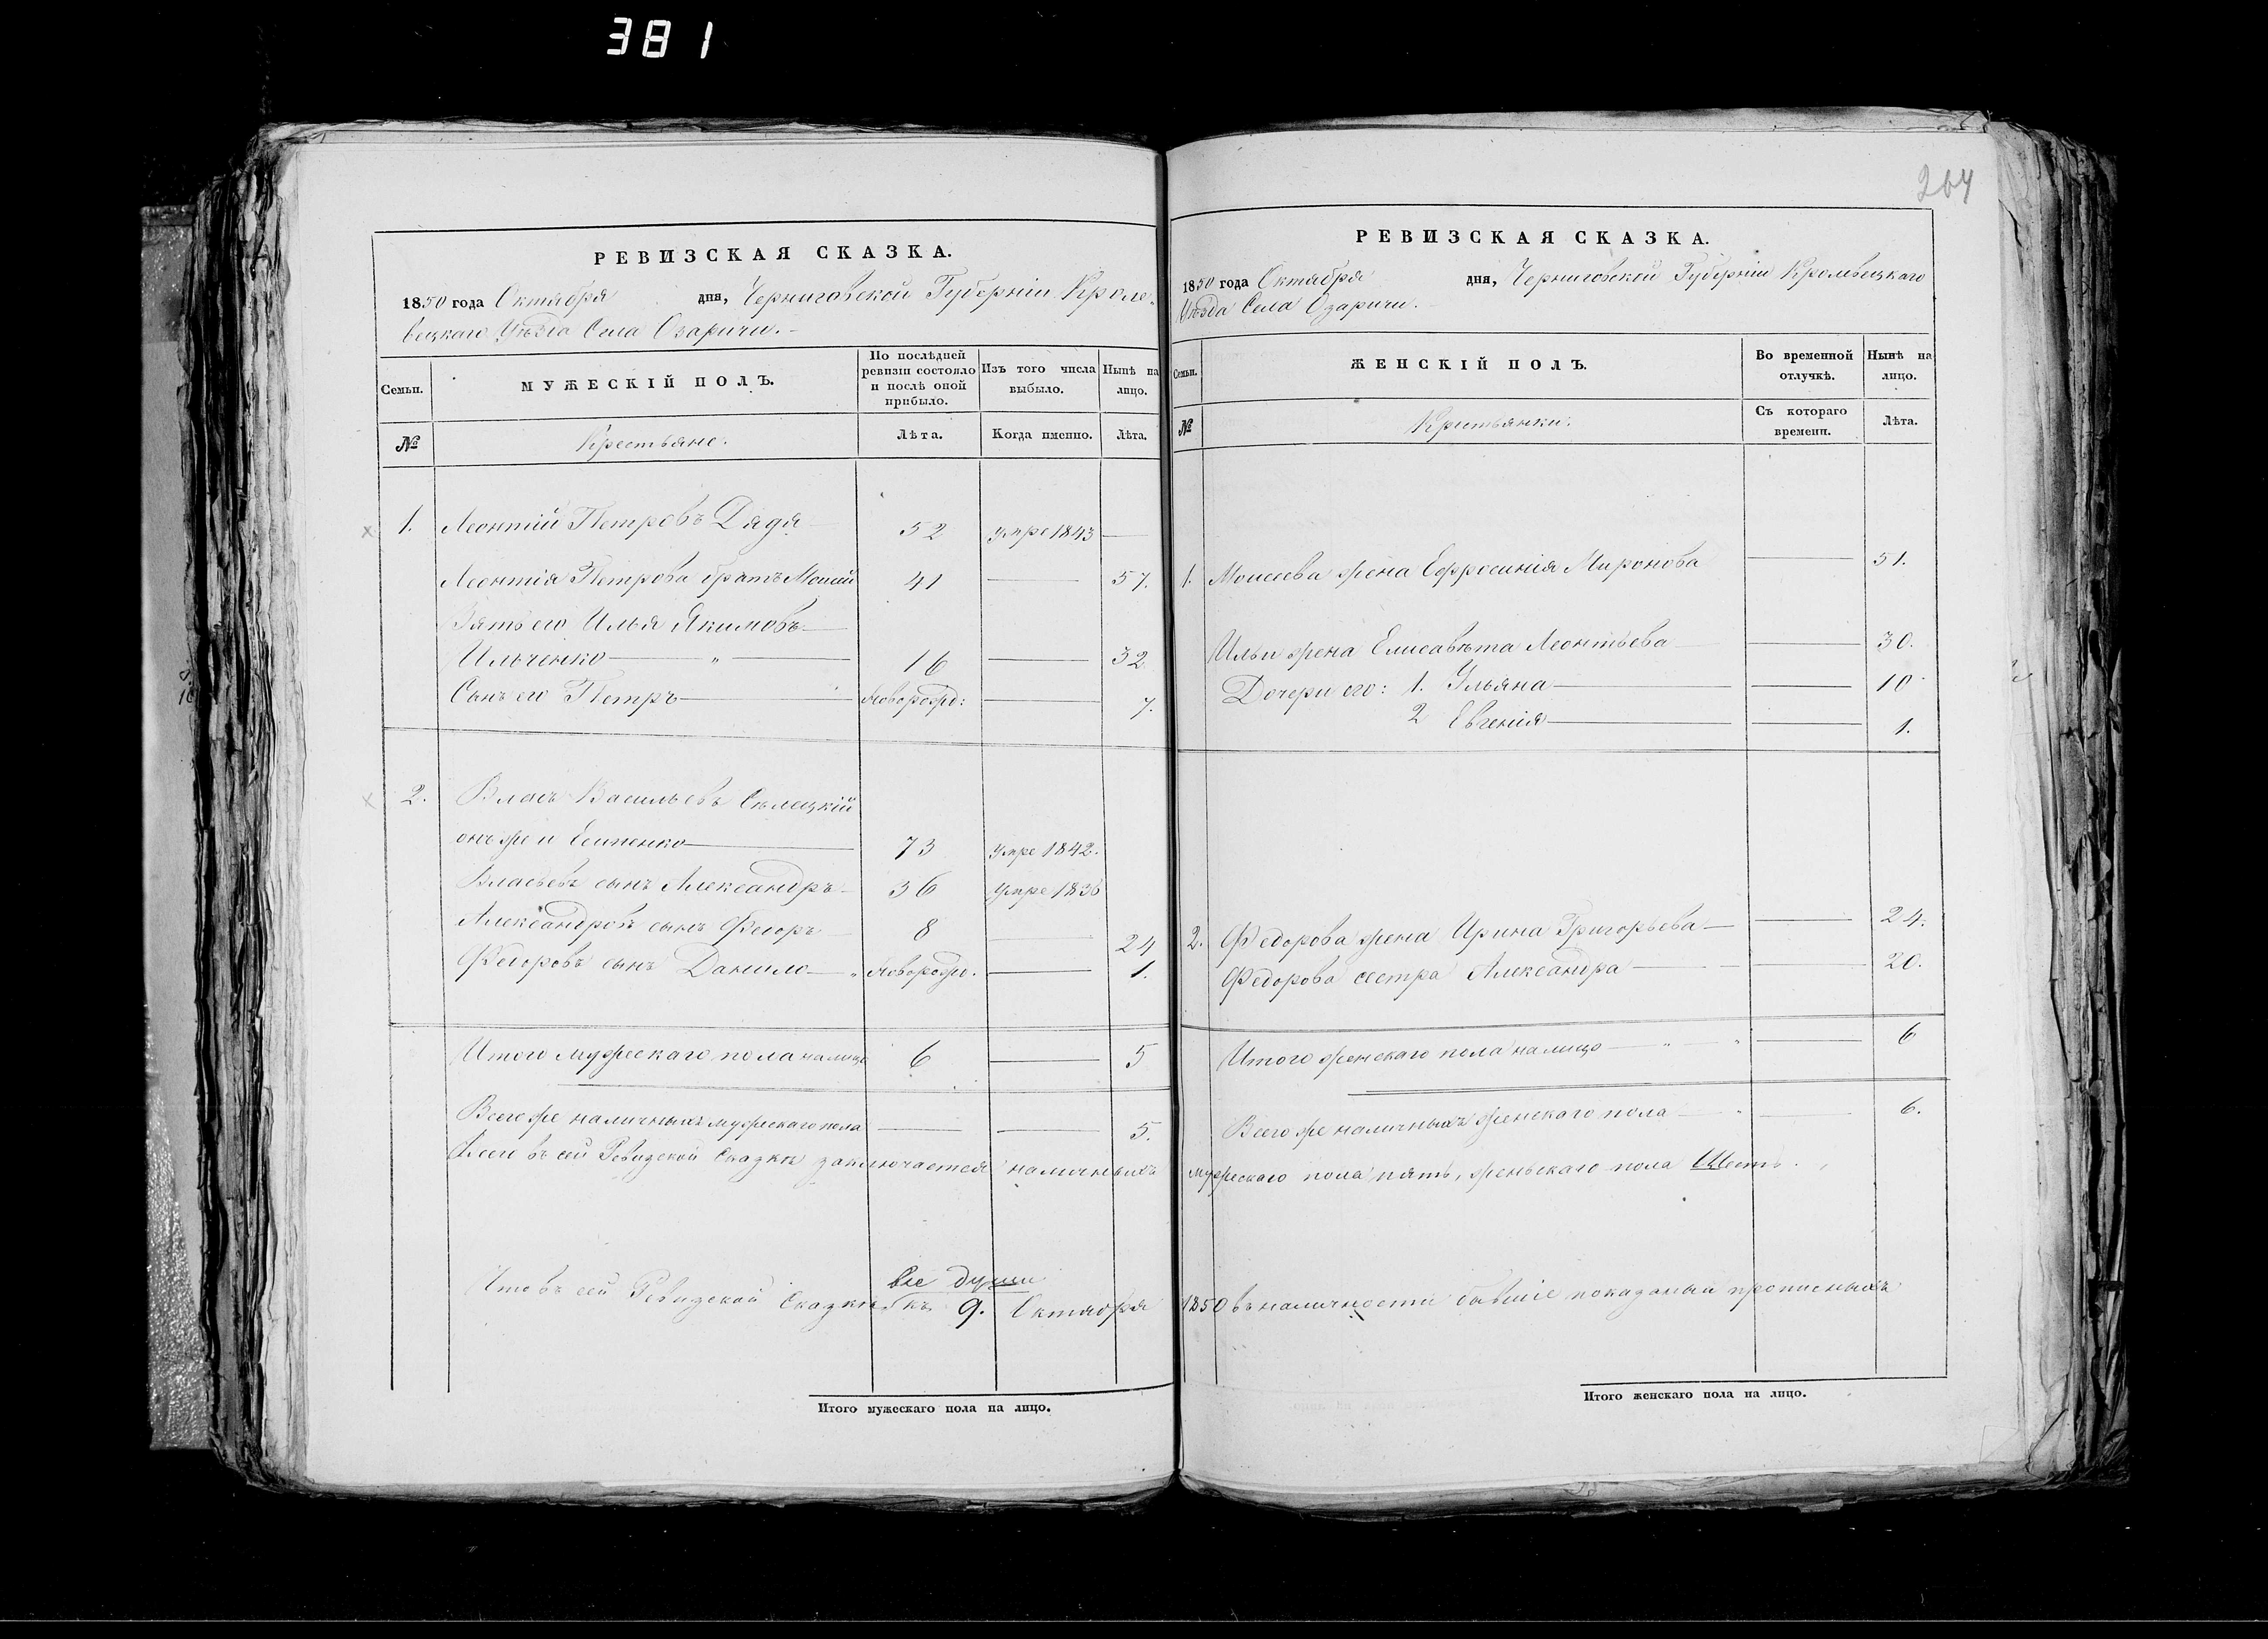 381
264
РЕВИЗСКАЯ СКАЗКА.
1850 года Октября дня, Черниговской Губерніи Кроле-
вецкаго Уѣзда Села Озаричи.
Семьи. МУЖЕСКІЙ ПОЛЪ. По послѣдней ревизіи состояло и послѣ оной прибыло. Изъ того числа выбыло. Нынѣ на лицо.
№ Крестьяне. Лѣта. Когда именно. Лѣта.
1. Леонтій Петровъ Дядя 52 умре 1843
Леонтія Петрова братъ Моисей 41 57.
Зять его Илья Якимовъ
Ильченко " 16 32
Сынъ его Петръ Новорожд: 7.
2. Власъ Васильевъ Сѣлецкій
онъ же и Есипенко 73 умре 1842.
Власьевъ сынъ Александръ 36 умре 1836
Александровъ сынъ Федоръ 8 24
Федоровъ сынъ Данило " Новорожд. 1.
Итого мужескаго пола налицо 6 5
Всего же наличныхъ мужескаго пола 5.
Всего въ сей Ревизской Сказкѣ заключается наличныхъ
все души
Что въ сей Ревизской Сказкѣ къ 9. Октября
Итого мужескаго пола на лицо.
РЕВИЗСКАЯ СКАЗКА.
1850 года Октября дня, Черниговской Губерніи Кролевецкаго
Уѣзда Села Озаричи.
Семьи. ЖЕНСКІЙ ПОЛЪ. Во временной отлучкѣ. Нынѣ на лицо.
№ Крестьянки. Съ котораго времени. Лѣта.
1. Моисеева жена Ефросинія Миронова 51.
Ильи жена Елисавѣта Леонтьева 30.
Дочери его: 1. Ульяна 10
2 Евгенія 1.
2. Федорова жена Ирина Григорьева 24.
Федорова сестра Александра 20.
Итого женскаго пола налицо " " 6
Всего же наличныхъ женскаго пола " 6.
мужескаго пола пять, женьскаго пола Шесть.
1850 въ наличности бывшіе показаны и прописныхъ
Итого женскаго пола на лицо.